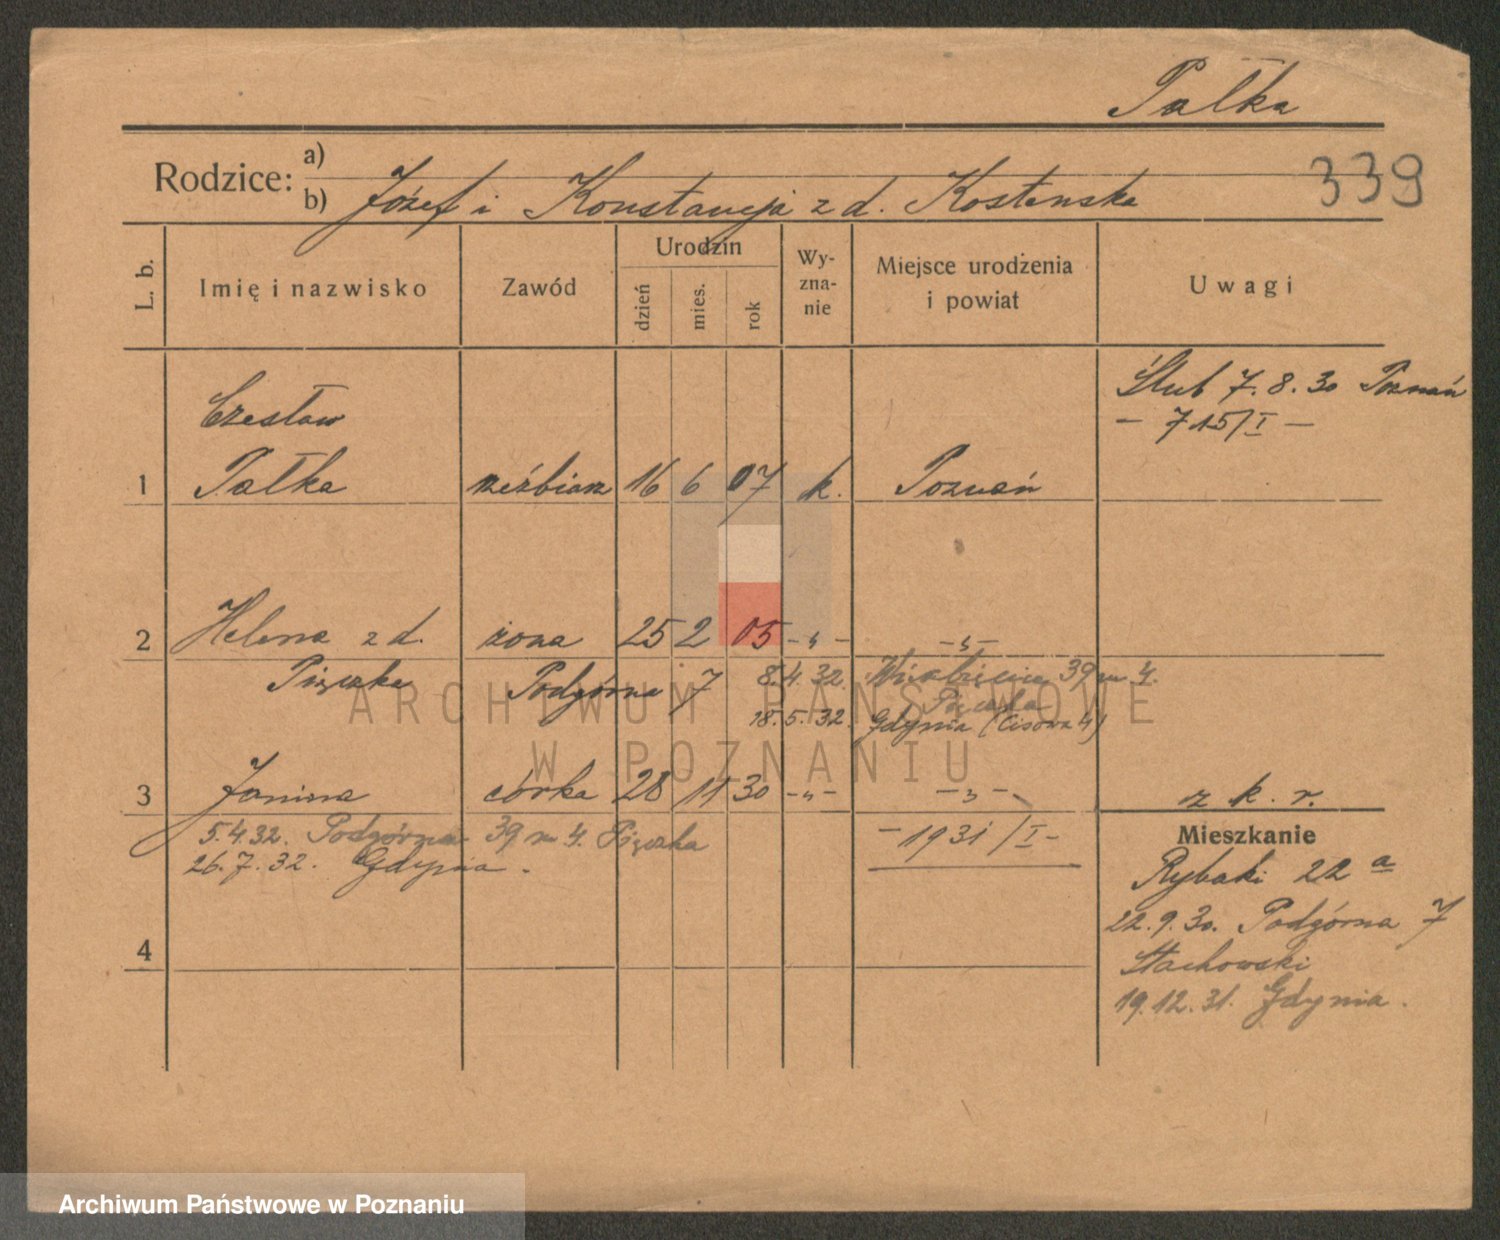 Pałka
Rodzice: a)
b) Józef i Konstancja z d. Kostenska
339
L. b.
Imię i nazwisko
Zawód
Urodzin
dzień
mies.
rok
Wy-
zna-
nie
Miejsce urodzenia
i powiat
Uwagi
Ślub 7.8.30 Poznań
- 715/I -
Czesław
1 Pałka rzeźbiarz 16 6 07 k. Poznań
2 Helena z d. żona 25 2 05 -"- -"-
Pięczka Podgórna 7 8.4.32. 39 m 4.
Pięczka
18.5.32. Gdynia (Cisowa 4)
3 Janina córka 28 11 30 -"- -"- z k. r.
5.4.32. Podgórna 39 m 4. Pięczka - 1931/I -
26.7.32. Gdynia.
Mieszkanie
Rybaki 22 a
22.9.30. Podgórna 7
Stachowski
19.12.31. Gdynia.
4
ARCHIWUM PAŃSTWOWE
W POZNANIU
Archiwum Państwowe w Poznaniu